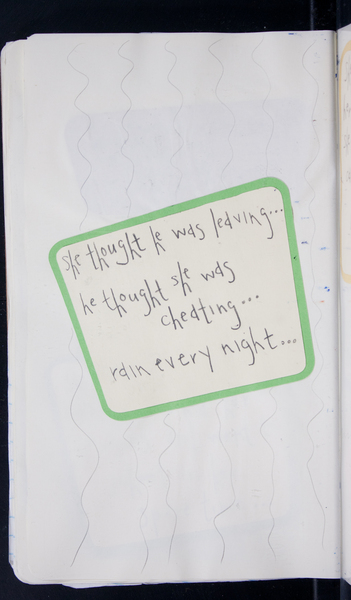 she thought he was leaving...
he thought she was
cheating...
rain every night...